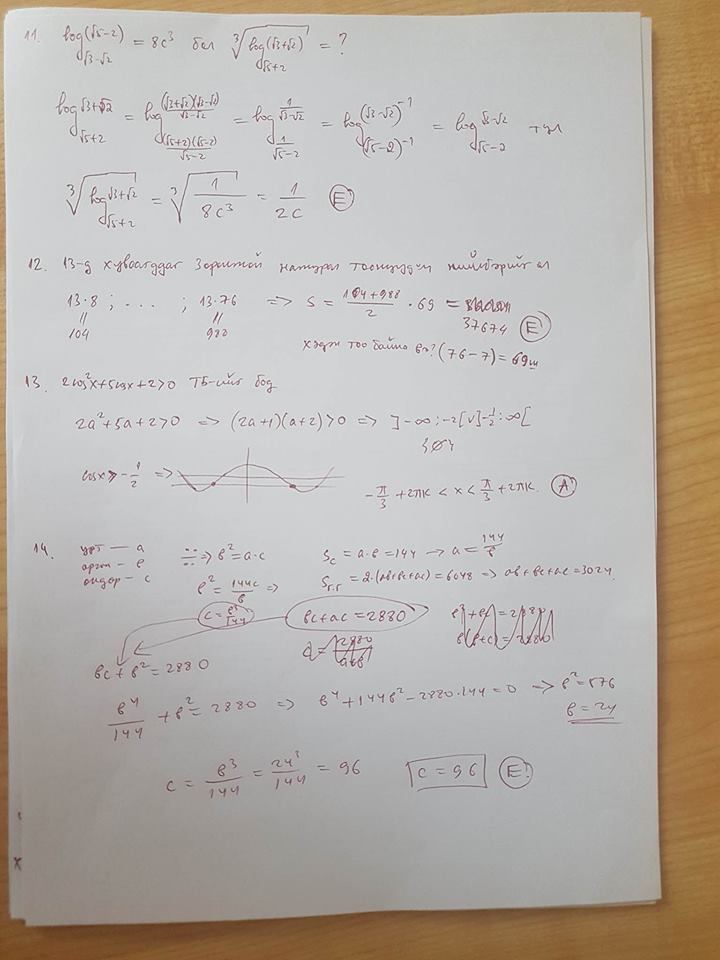 11. log_{√3-√2}(√5-2) = 8c³ бол ∛(log_{√5+2}(√3+√2)) = ?
log_{√5+2} √3+√2 = log_{(√5+2)(√5-2)/(√5-2)} (√3+√2)(√3-√2)/(√3-√2) = log_{1/(√5-2)} 1/(√3-√2) = log_{(√5-2)⁻¹} (√3-√2)⁻¹ = log_{√5-2} √3-√2 тул
∛(log_{√5+2} √3+√2) = ∛(1/(8c³)) = 1/(2c) (E)
12. 13-д хуваагддаг 3 оронтой натурал тоонуудын нийлбэрийг ол
13·8 ; . . . ; 13·76 => S = (104+988)/2 · 69 =
= 104 = 988 37674 (E)
хэдэн тоо байна вэ? (76-7) = 69ш
13. 2cos²x+5cosx+2>0 ТБ-ийг бод
2a²+5a+2>0 => (2a+1)(a+2)>0 => ]-∞;-2[∨]-1/2:∞[
{∅}
cosx > -1/2 =>
-π/3 + 2πк < x < π/3 + 2πк. (A)
14. урт — a ∺ => в² = a·c S_c = a·в = 144 → a = 144/в
өргөн — в
өндөр — c в² = 144c/в => S_{г.г} = 2·(aв+вc+ac) = 6048 => aв+вc+ac = 3024.
c = в³/144 вc+ac = 2880
вc + в² = 2880
в⁴/144 + в² = 2880 => в⁴+144в²-2880·144=0 => в² = 576
в = 24
c = в³/144 = 24³/144 = 96 c = 96 (E!)